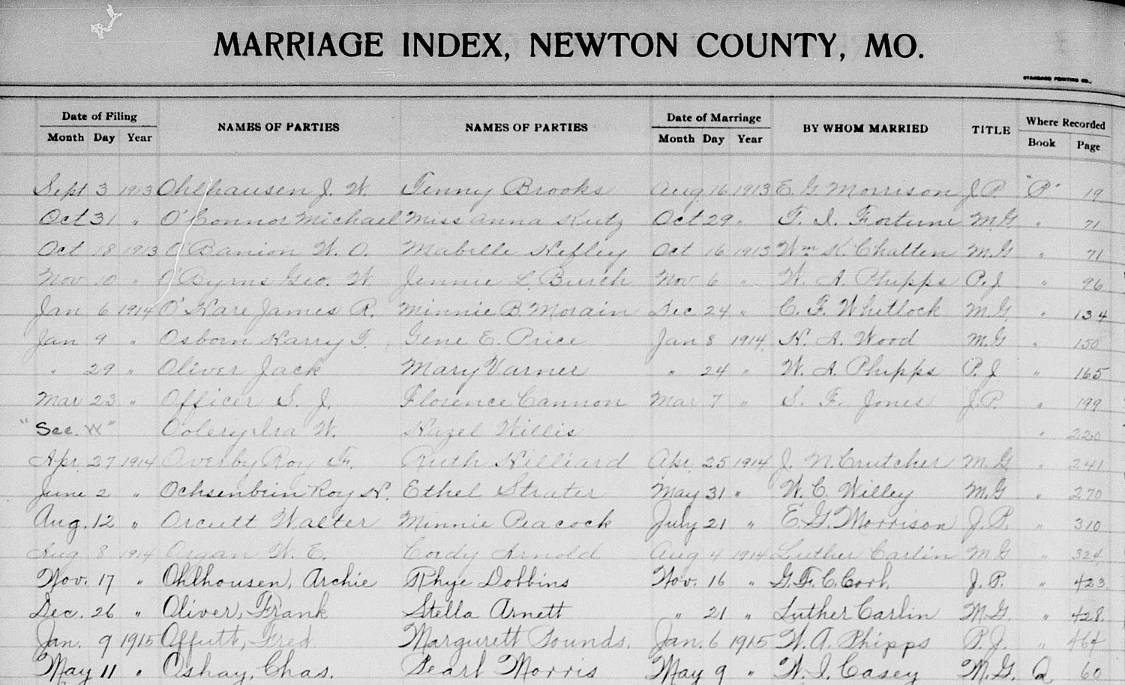 MARRIAGE INDEX, NEWTON COUNTY, MO.
STANDARD PRINTING CO.
Date of Filing NAMES OF PARTIES NAMES OF PARTIES Date of Marriage BY WHOM MARRIED TITLE Where Recorded
Month Day Year Month Day Year Book Page
Sept 3 1913 Ohlhausen J. W. Fenny Brooks Aug 16 1913 E. G. Morrison J.P. "P" 19
Oct 31 " O'Connor Michael Miss Anna Kutz Oct 29 " T. I. Fortune M.G. " 71
Oct 18 1913 O'Banion W. O. Mabelle Hefley Oct 16 1913 Wm K. Chatten M.G " 71
Nov 10 " O'Byrns Geo. W. Jennie L. Burch Nov 6 " W. A. Phipps P.J " 96
Jan 6 1914 O'Hare James R. Minnie B. Morain Dec 24 " C. F. Whitlock M.G. " 134
Jan 9 " Osborn Harry T. Gene E. Price Jan 8 1914. H. A. Wood M.G " 150
" 29 " Oliver Jack Mary Varner " 24 " W. A. Phipps P.J " 165
Mar 23 " Officer S. J. Florence Cannon Mar 7 " S. F. Jones J.P. " 199
"See. W" Ira W. Hazel Willis " 220
Apr. 27 1914 Overby Roy F. Ruth Hilliard Apr. 25 1914 J. N. Crutcher M.G. " 241
June 2 " Ochsenbein Roy H. Ethel Strater May 31 " W. C. Willey M.G " 270
Aug. 12 " Orcutt Walter Minnie Peacock July 21 " E. G. Morrison J.P. " 310
Aug 8 1914 Organ W. E. Cordy Arnold Aug 4 1914 Luther Carlin M.G. " 324
Nov. 17 " Ohlhousen, Archie Rhye Dobbins Nov. 16 " G. F. C. Corl. J.P. " 423
Dec. 26 " Oliver, Frank Stella Arnett " 21 " Luther Carlin M.G. " 428
Jan. 9 1915 Offutt, Fred Margurett Sounds. Jan. 6 1915 W. A. Phipps P.J. " 464
May 11 " Oshay, Chas. Pearl Morris May 9 " W. I. Casey M.G. Q 60